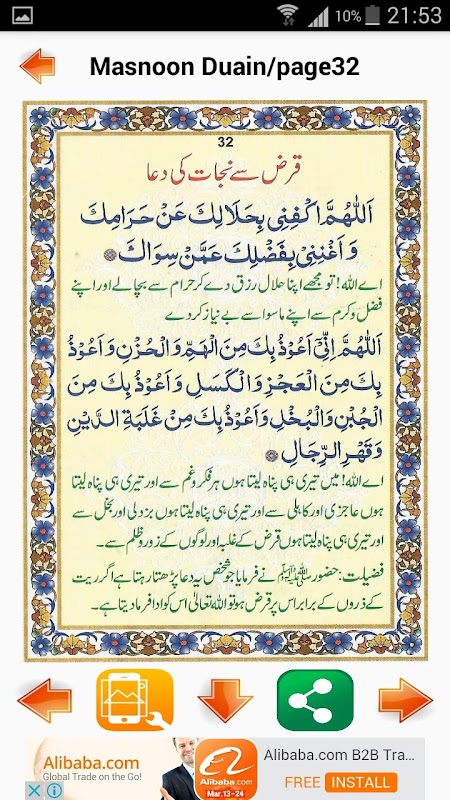 10% 21:53
Masnoon Duain/page32
32
قرض سے نجات کی دعا
اَللّٰهُمَّ اكْفِنِيْ بِحَلَالِكَ عَنْ حَرَامِكَ
وَاَغْنِنِيْ بِفَضْلِكَ عَمَّنْ سِوَاكَ
اے اللہ! تو مجھے اپنا حلال رزق دے کر حرام سے بچا لے اور اپنے
فضل و کرم سے اپنے ماسوا سے بے نیاز کر دے
اَللّٰهُمَّ اِنِّيْ اَعُوْذُ بِكَ مِنَ الْهَمِّ وَالْحُزْنِ وَاَعُوْذُ
بِكَ مِنَ الْعَجْزِ وَالْكَسَلِ وَاَعُوْذُ بِكَ مِنَ
الْجُبْنِ وَالْبُخْلِ وَاَعُوْذُ بِكَ مِنْ غَلَبَةِ الدَّيْنِ
وَقَهْرِ الرِّجَالِ
اے اللہ! میں تیری ہی پناہ لیتا ہوں ہر فکر و غم سے اور تیری ہی پناہ لیتا
ہوں عاجزی اور کاہلی سے اور تیری ہی پناہ لیتا ہوں بزدلی اور بخل سے
اور تیری ہی پناہ لیتا ہوں قرض کے غلبہ اور لوگوں کے زور و ظلم سے۔
فضیلت: حضور ﷺ نے فرمایا جو شخص یہ دعا پڑھتا رہتا ہے اگر ریت
کے ذروں کے برابر اس پر قرض ہو تو اللہ تعالیٰ اس کو ادا فرما دیتا ہے۔
Alibaba.com
Global Trade on the Go!
Alibaba.com
Mar.13~24
Alibaba.com B2B Tra...
FREE INSTALL